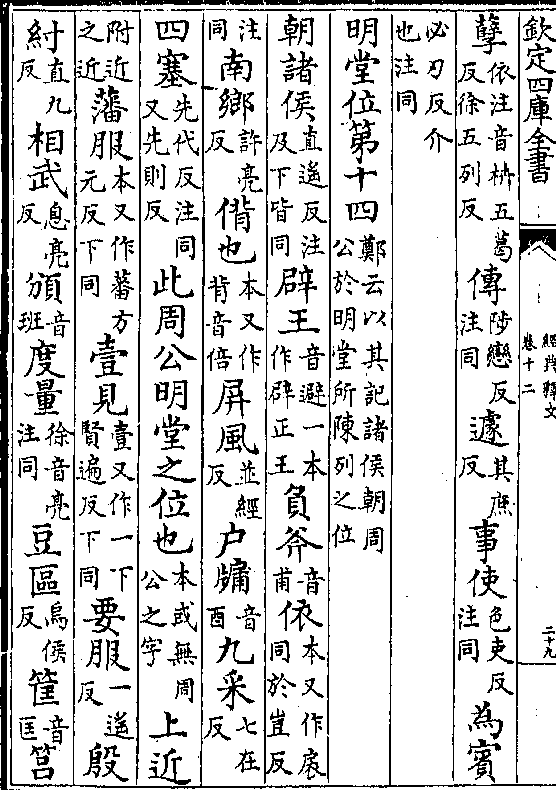 欽定四庫全書
經典釋文
卷十二
二十九
孽依注音枿五葛反徐五列反傳陟戀反注同遽其庶反事使色吏反注同為賓
必刃反介也注同
明堂位第十四鄭云以其記諸侯朝周公於明堂所陳列之位
朝諸侯直遥反注及下皆同辟王音避一本作辟正王負斧音甫依本又作扆同於豈反
注同南鄉許亮反偝也本又作背音倍屏風並經反户牖音酉九采七在反
四塞先代反注同又先則反此周公明堂之位也本或無周公之字上近
附近之近藩服本又作蕃方元反下同壹見壹又作一下賢遍反下同要服一遥反殷
紂直九反相武息亮反頒音班度量徐音亮注同豆區烏侯反筐音匡筥